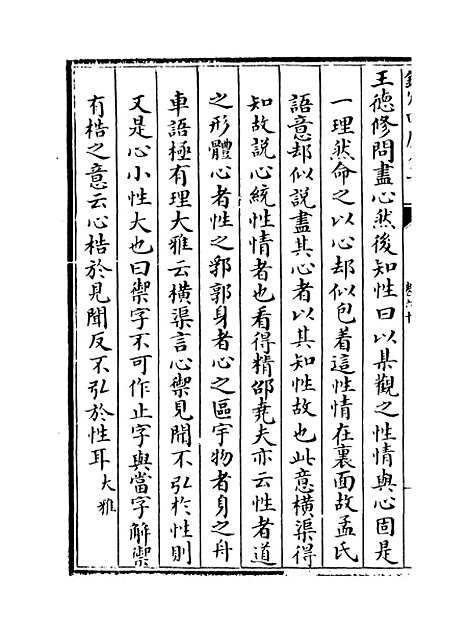 王德修問盡心然後知性曰以某觀之性情與心固是
一理然命之以心却似包着這性情在裏面故孟氏
語意却似説盡其心者以其知性故也此意横渠得
知故説心統性情者也看得精邵堯夫亦云性者道
之形體心者性之郛郭身者心之區宇物者身之舟
車語極有理大雅云横渠言心禦見聞不弘於性則
又是心小性大也曰禦字不可作止字與當字解禦
有梏之意云心梏於見聞反不弘於性耳大雅